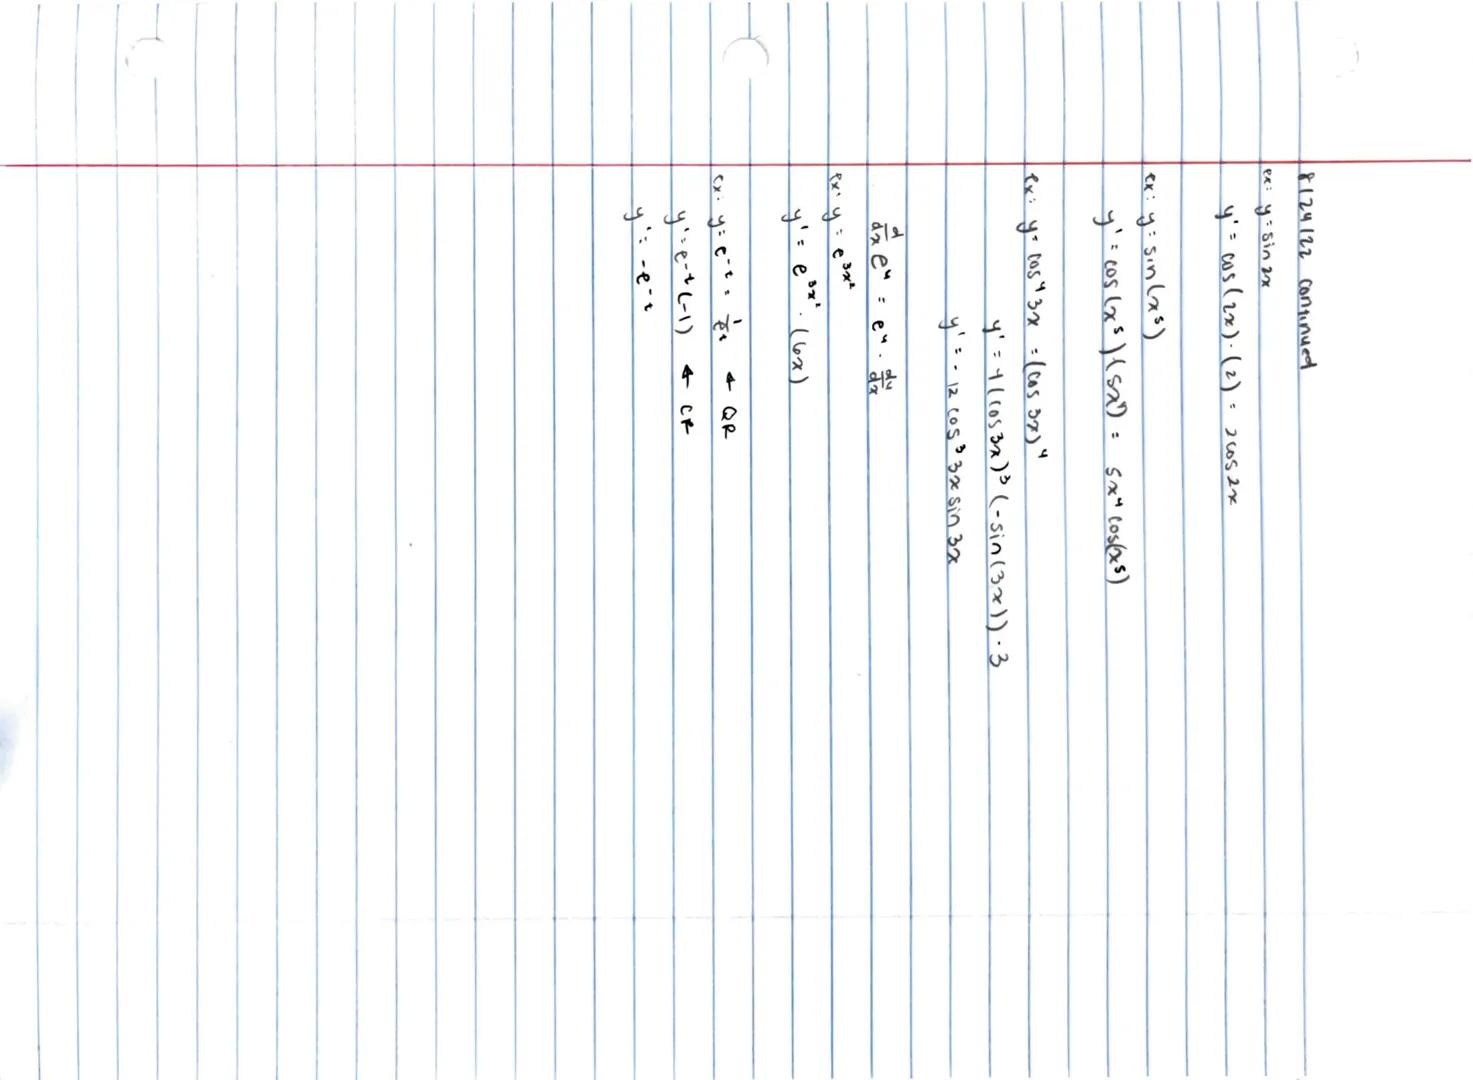 8/24/22 continued
ex: y = sin 2x
y' = cos(2x)·(2) = 2cos 2x
ex: y = sin(x⁵)
y' = cos(x⁵)(5x⁴) = 5x⁴ cos(x⁵)
ex: y = cos⁴ 3x = (cos 3x)⁴
y' = 4(cos 3x)³ (-sin(3x))·3
y' = -12 cos³ 3x sin 3x
d/dx eᵘ = eᵘ · du/dx
ex: y = e^3x²
y' = e^3x² · (6x)
ex: y = e^-t = 1/e^t ← QR
y' = e^-t (-1) ← CR
y' = -e^-t